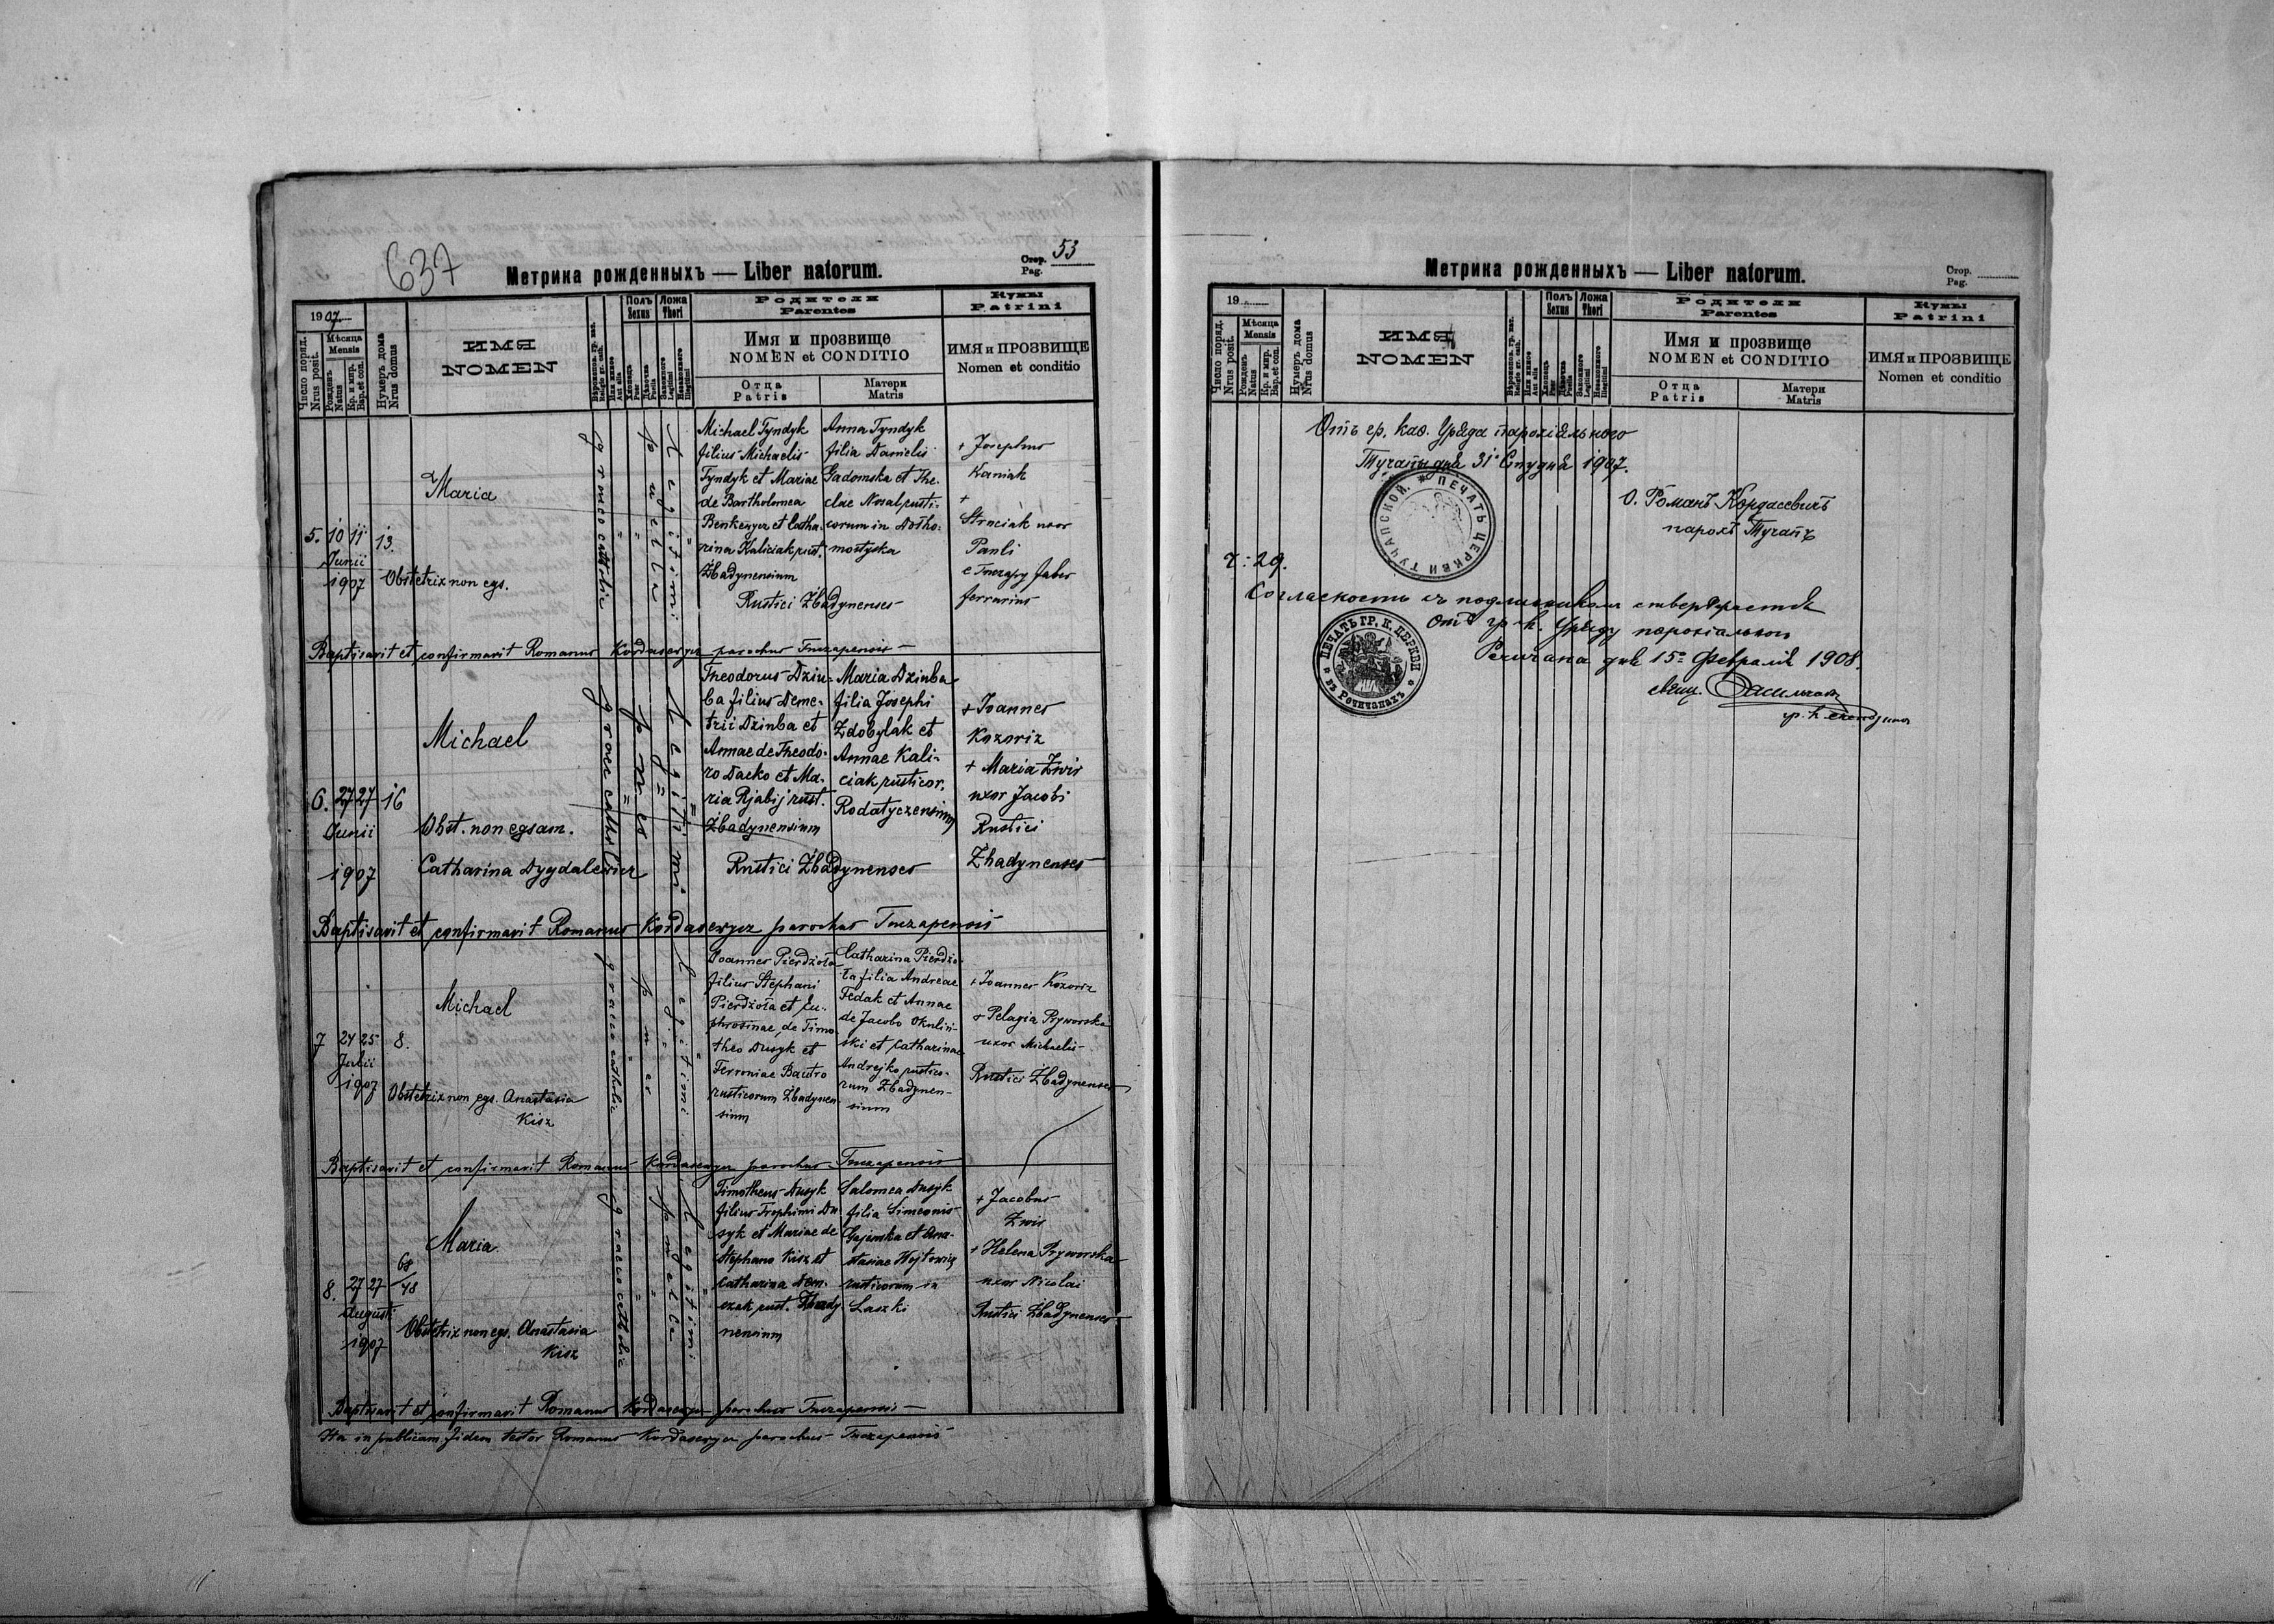 637
Стор. 53
Pag.
Метрика рожденныхъ — Liber natorum.
1907
Число поряд.
Nrus posit.
Мѣсяца
Mensis
Рожденъ
Natus
Кр. и мѵр.
Bap. et con.
Нумеръ дома
Nrus domus
ИМЯ
NOMEN
Полъ
Sexus
Ложа
Thori
Родители
Parentes
Имя и прозвище
NOMEN et CONDITIO
Отца
Patris
Матери
Matris
Кумы
Patrini
ИМЯ и ПРОЗВИЩЕ
Nomen et conditio
5. 10 11 13.
Junii
1907
Maria
Obstetrix non egs.
graeco catholic
puella
Legitimi
Michael Tyndyk
filius Michaelis
Tyndyk et Mariae
de Bartholomea
rina Kaliciak rust.
Żbadynensium
Anna Tyndyk
filia Danielis
Gadomska et The-
clae Nosal rusti-
corum in Dotho-
mostyska
Rustici Żbadynenses
+ Josephus
Kaniak
+
Struciak uxor
Pauli
e Tuczapy faber
ferrarius
Baptisavit et confirmavit Romanus Kordasewycz parochus Tuczapensis
6. 27 27 16
Junii
1907
Michael
Obst. non egsam.
Catharina Dygdalewicz
graeco cathol
puer
Legitimi
Theodorus Dziu-
ba filius Deme-
trii Dziuba et
Annae de Theodo-
ro Dacko et Ma-
ria Rjabij rust.
Żbadynensium
Maria Dziuba
filia Josephi
Zdobylak et
Annae Kali-
ciak rusticor.
Rodatyczensium
Rustici Żbadynenses
+ Ioannes
Kozoriz
+ Maria Zwir
uxor Jacobi
Rustici
Żbadynenses
Baptisavit et confirmavit Romanus Kordasewycz parochus Tuczapensis
7 24 25 8.
Julii
1907
Michael
Obstetrix non egs. Anastasia
Kisz
graeco catholic
puer
Legitimi
Ioannes Pierdżoła
filius Stephani
Pierdżoła et Eu-
phrosinae de Timo-
theo Dusyk et
Ferroniae Baутro
rusticorum Żbadynen-
sium
Catharina Pierdżo-
ła filia Andreae
Fedak et Annae
de Jacobo Okuliń-
ski et Catharinae
Andrejko rustico-
rum Żbadynen-
sium
+ Ioannes Kozoriz
+ Pelagia Pryworska
uxor Michaelis
Rustici Żbadynenses
Baptisavit et confirmavit Romanus Kordasewycz parochus Tuczapensis
8. 27 27 68/48
Augusti
1907
Maria
Obstetrix non egs. Anastasia
Kisz
graeco catholic
puella
Legitimi
Timotheus Dusyk
filius Trophimi Du-
syk et Mariae de
Stephano Kisz et
Catharina Dem-
czak rust. Żbady-
nensium
Salomea Dusyk
filia Simeonis
Gajewska et Ana-
stasiae Wojtowicz
rusticorum in
Laszki
+ Jacobus
Zwir
+ Helena Pryworska
uxor Nicolai
Rustici Żbadynenses
Baptisavit et confirmavit Romanus Kordasewycz parochus Tuczapensis
Ita in publicam fidem testor Romanus Kordasewycz parochus Tuczapensis
Метрика рожденныхъ — Liber natorum.
Стор.
Pag.
19
Число поряд.
Nrus posit.
Мѣсяца
Mensis
Рожденъ
Natus
Кр. и мѵр.
Bap. et con.
Нумеръ дома
Nrus domus
ИМЯ
NOMEN
Полъ
Sexus
Ложа
Thori
Родители
Parentes
Имя и прозвище
NOMEN et CONDITIO
Отца
Patris
Матери
Matris
Кумы
Patrini
ИМЯ и ПРОЗВИЩЕ
Nomen et conditio
Отъ гр. каѳ. Уряда парохіяльного
Тучапы дня 31 Студня 1907.
ПЕЧАТЬ ЦЕРКВИ ТУЧАПСКОЙ.
О. Романъ Кордасевичъ
парохъ Тучапъ
Ч: 29.
Согласность съ подлинникомъ ствержается
Отъ гр.-к. Уряду парохіального
дня 15 Февраля 1908.
ПЕЧАТЬ ГР. К. ЦЕРКВИ
свящ.